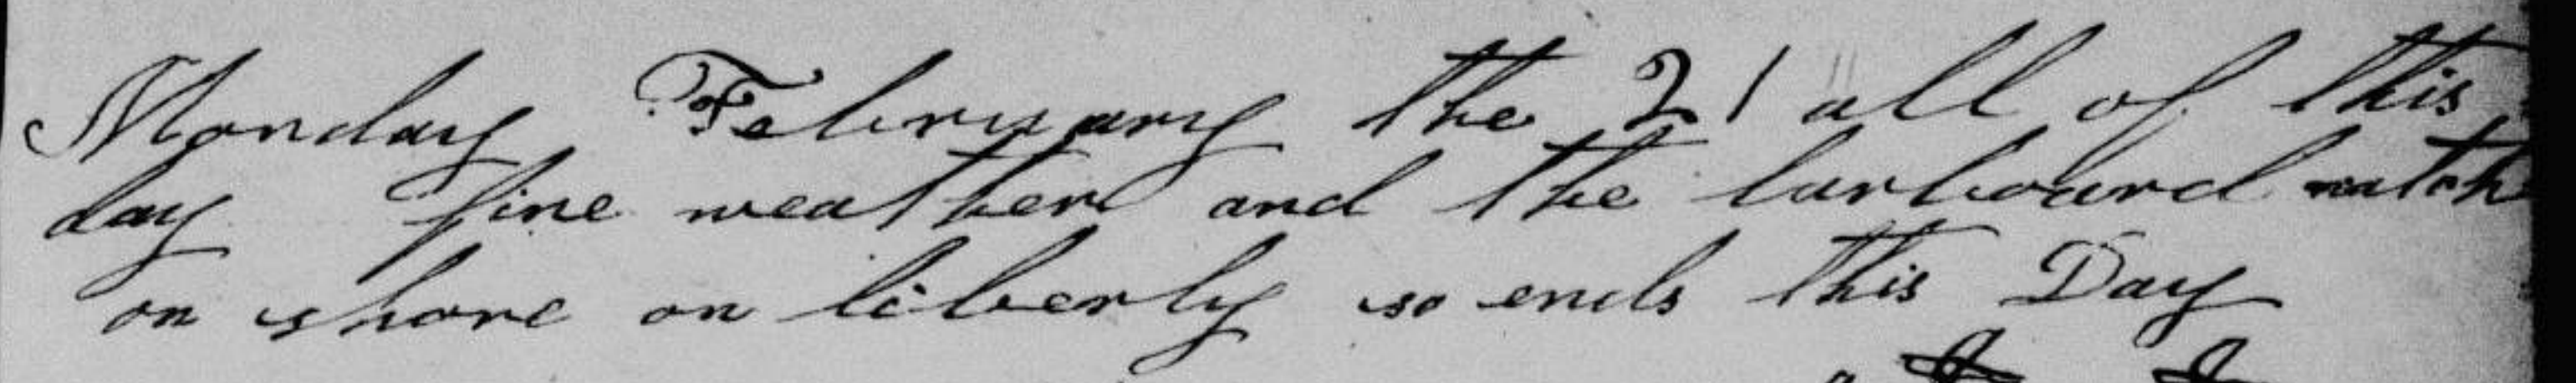 Monday February the 21 all of this
day fine weather and the larboard watch
on shore on liberty so ends this Day